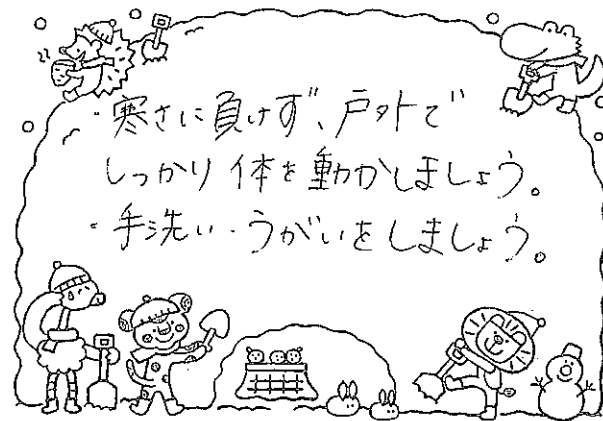 ・寒さに負けず、戸外で
しっかり体を動かしましょう。
・手洗い・うがいをしましょう。